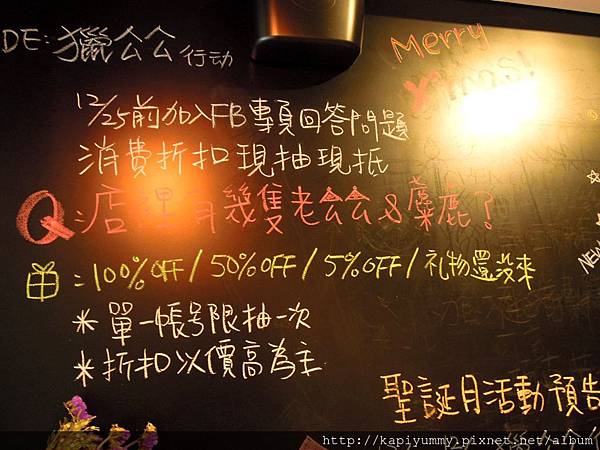 DE:獵公公行动
Merry
X'mas!
12/25前加入FB專頁回答問題
消費折扣現抽現抵
Q:店裡有幾隻老公公&麋鹿?
=100%OFF/50%OFF/5%OFF/礼物還没來
NEW
*單一帳号限抽一次
*折扣以價高為主
聖誕月活動預告
http://kapiyummy.pixnet.net/album